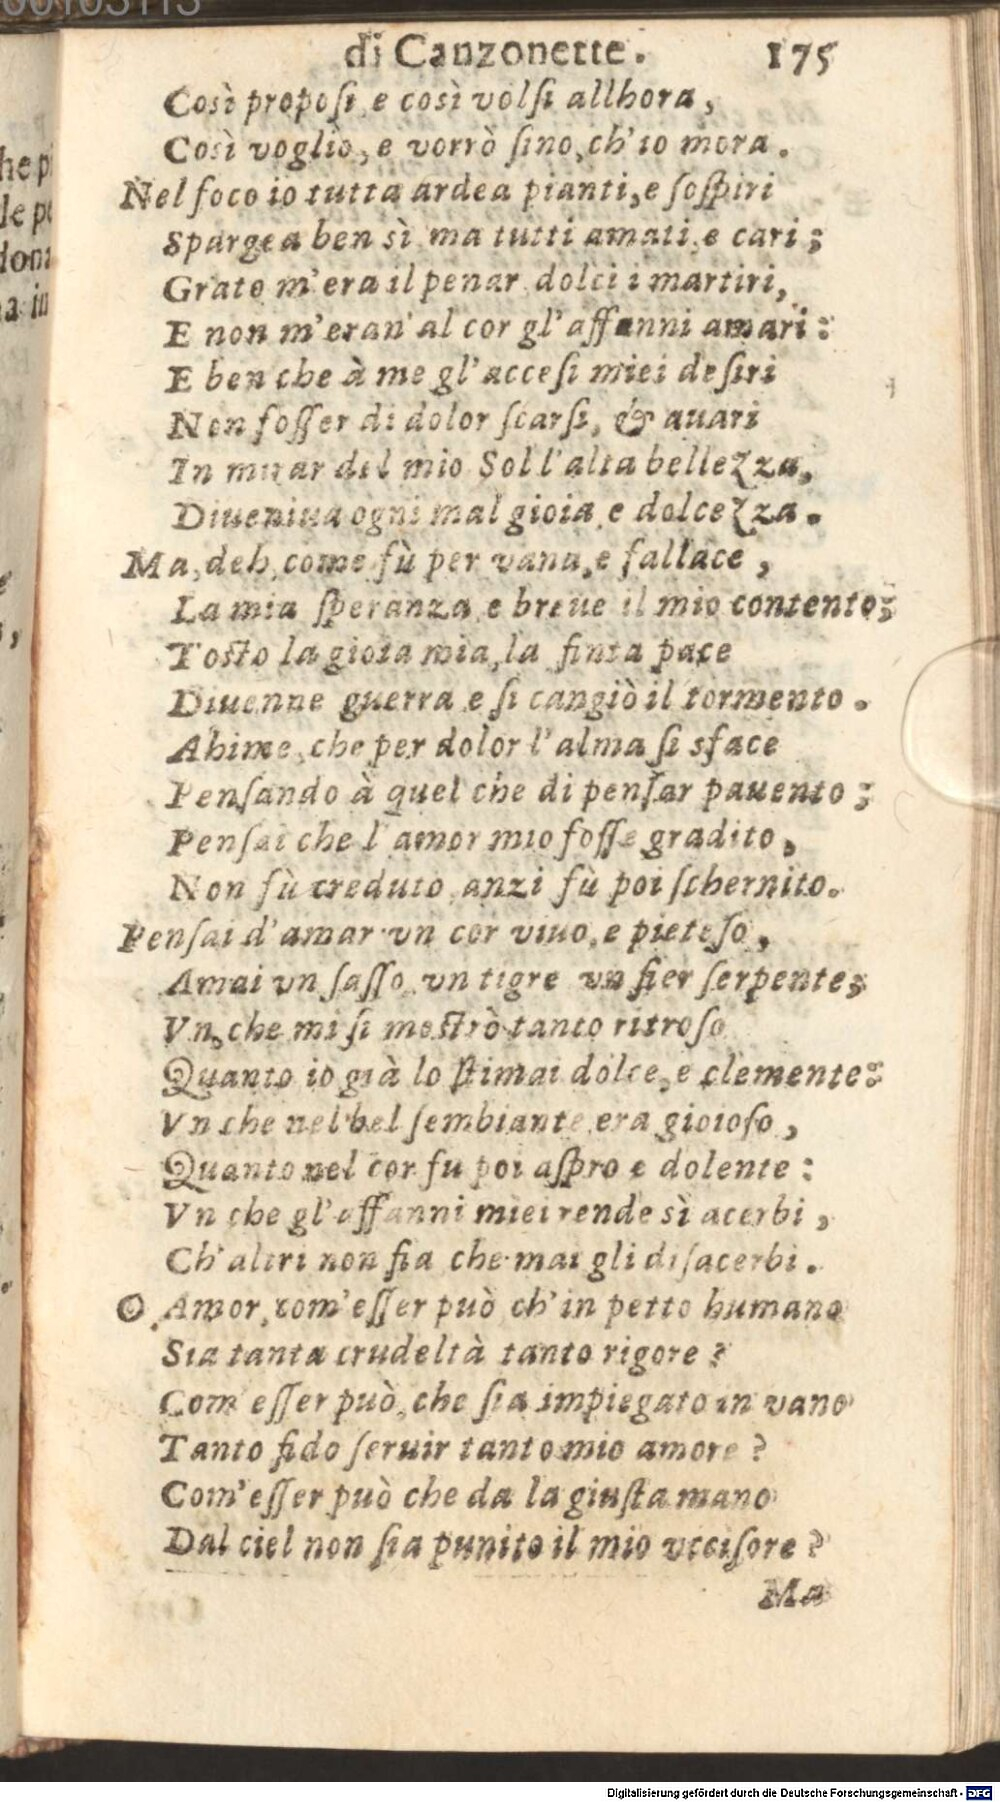 di Canzonette. 175
Così proposi, e così volsi allhora,
Così voglio, e vorrò sino, ch'io mora.
Nel foco io tutta ardea pianti, e sospiri
Spargea ben sì ma tutti amati, e cari;
Grato m'era il penar dolci i martiri,
E non m'eran' al cor gl'affanni amari:
E ben che à me gl'accesi miei desiri
Non fosser di dolor scarsi, & auari
In mirar del mio Sol l'alta bellezza,
Diueniua ogni mal gioia, e dolcezza.
Ma, deh, come fù per vana, e fallace,
La mia speranza, e breue il mio contento;
Tosto la gioia mia, la finta pace
Diuenne guerra, e si cangiò il tormento.
Ahime, che per dolor l'alma si sface
Pensando à quel che di pensar pauento;
Pensai che l'amor mio fosse gradito,
Non fù creduto, anzi fù poi schernito.
Pensai d'amar vn cor viuo, e pietoso,
Amai vn sasso, vn tigre vn fier serpente;
Vn, che mi si mostrò tanto ritroso
Quanto io già lo stimai dolce, e clemente:
Vn che nel bel sembiante era gioioso,
Quanto nel cor fu poi aspro e dolente:
Vn che gl'affanni miei rende sì acerbi,
Ch'altri non fia che mai gli disacerbi.
O Amor, com'esser può ch'in petto humano
Sia tanta crudeltà tanto rigore?
Com'esser può, che sia impiegato in vano
Tanto fido seruir tanto mio amore?
Com'esser può che da la giusta mano
Dal ciel non sia punito il mio vccisore?
Ma
he pi
le po
dona
Digitalisierung gefördert durch die Deutsche Forschungsgemeinschaft - DFG